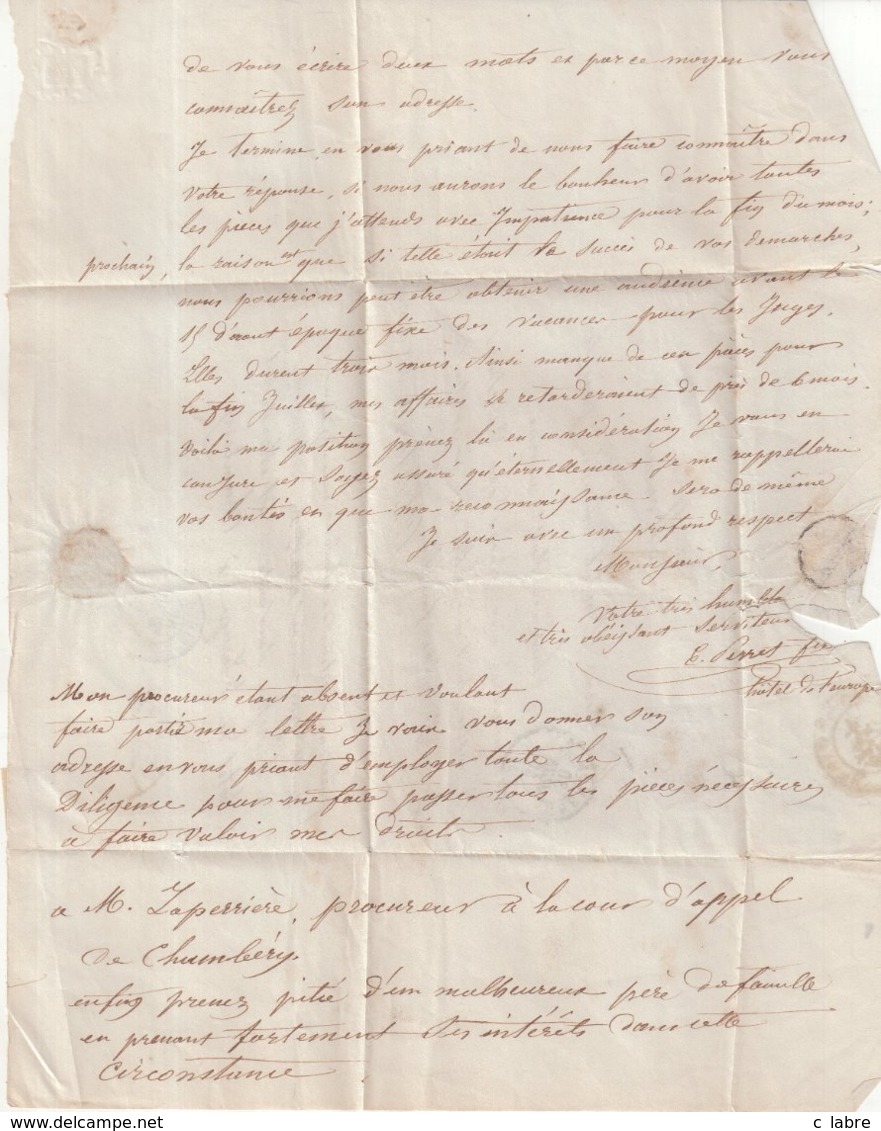 de vous écrire deux mots et par ce moyen vous
connaîtrez son adresse.
Je termine, en vous priant de nous faire connaître dans
votre réponse, si nous aurons le bonheur d'avoir toutes
les pièces que j'attends avec Impatience pour la fin du mois;
prochain, la raison est que si telle étoit le succès de vos demarches,
nous pourrions peut être obtenir une audience avant le
15 d'aout époque fixe des vacances pour les Juges.
Elles durent trois mois. Ainsi manque de ces pièces pour
la fin Juillet, mes affaires se retarderaient de près de 6 mois.
Voilà ma position prenez la en considération Je vous en
conjure et soyez assuré qu'éternellement Je me rappellerai
vos bontés en que ma reconnaissance sera de même
Je suis avec un profond respect
Monsieur,
Votre très humble
et très obéissant serviteur
E. Perret fils
hôtel de l'europe
Mon procureur étant absent et voulant
faire partir ma lettre Je vais vous donner son
adresse en vous priant d'employer toute la
Diligence pour me faire passer tous les pièces nécessaires
a faire valoir mes droits.
a M. Laperrière, procureur à la cour d'appel
de Chambéry.
enfin prenez pitié d'un malheureux père de famille
en prenant fortement ses intérêts dans cette
circonstance.
c labre